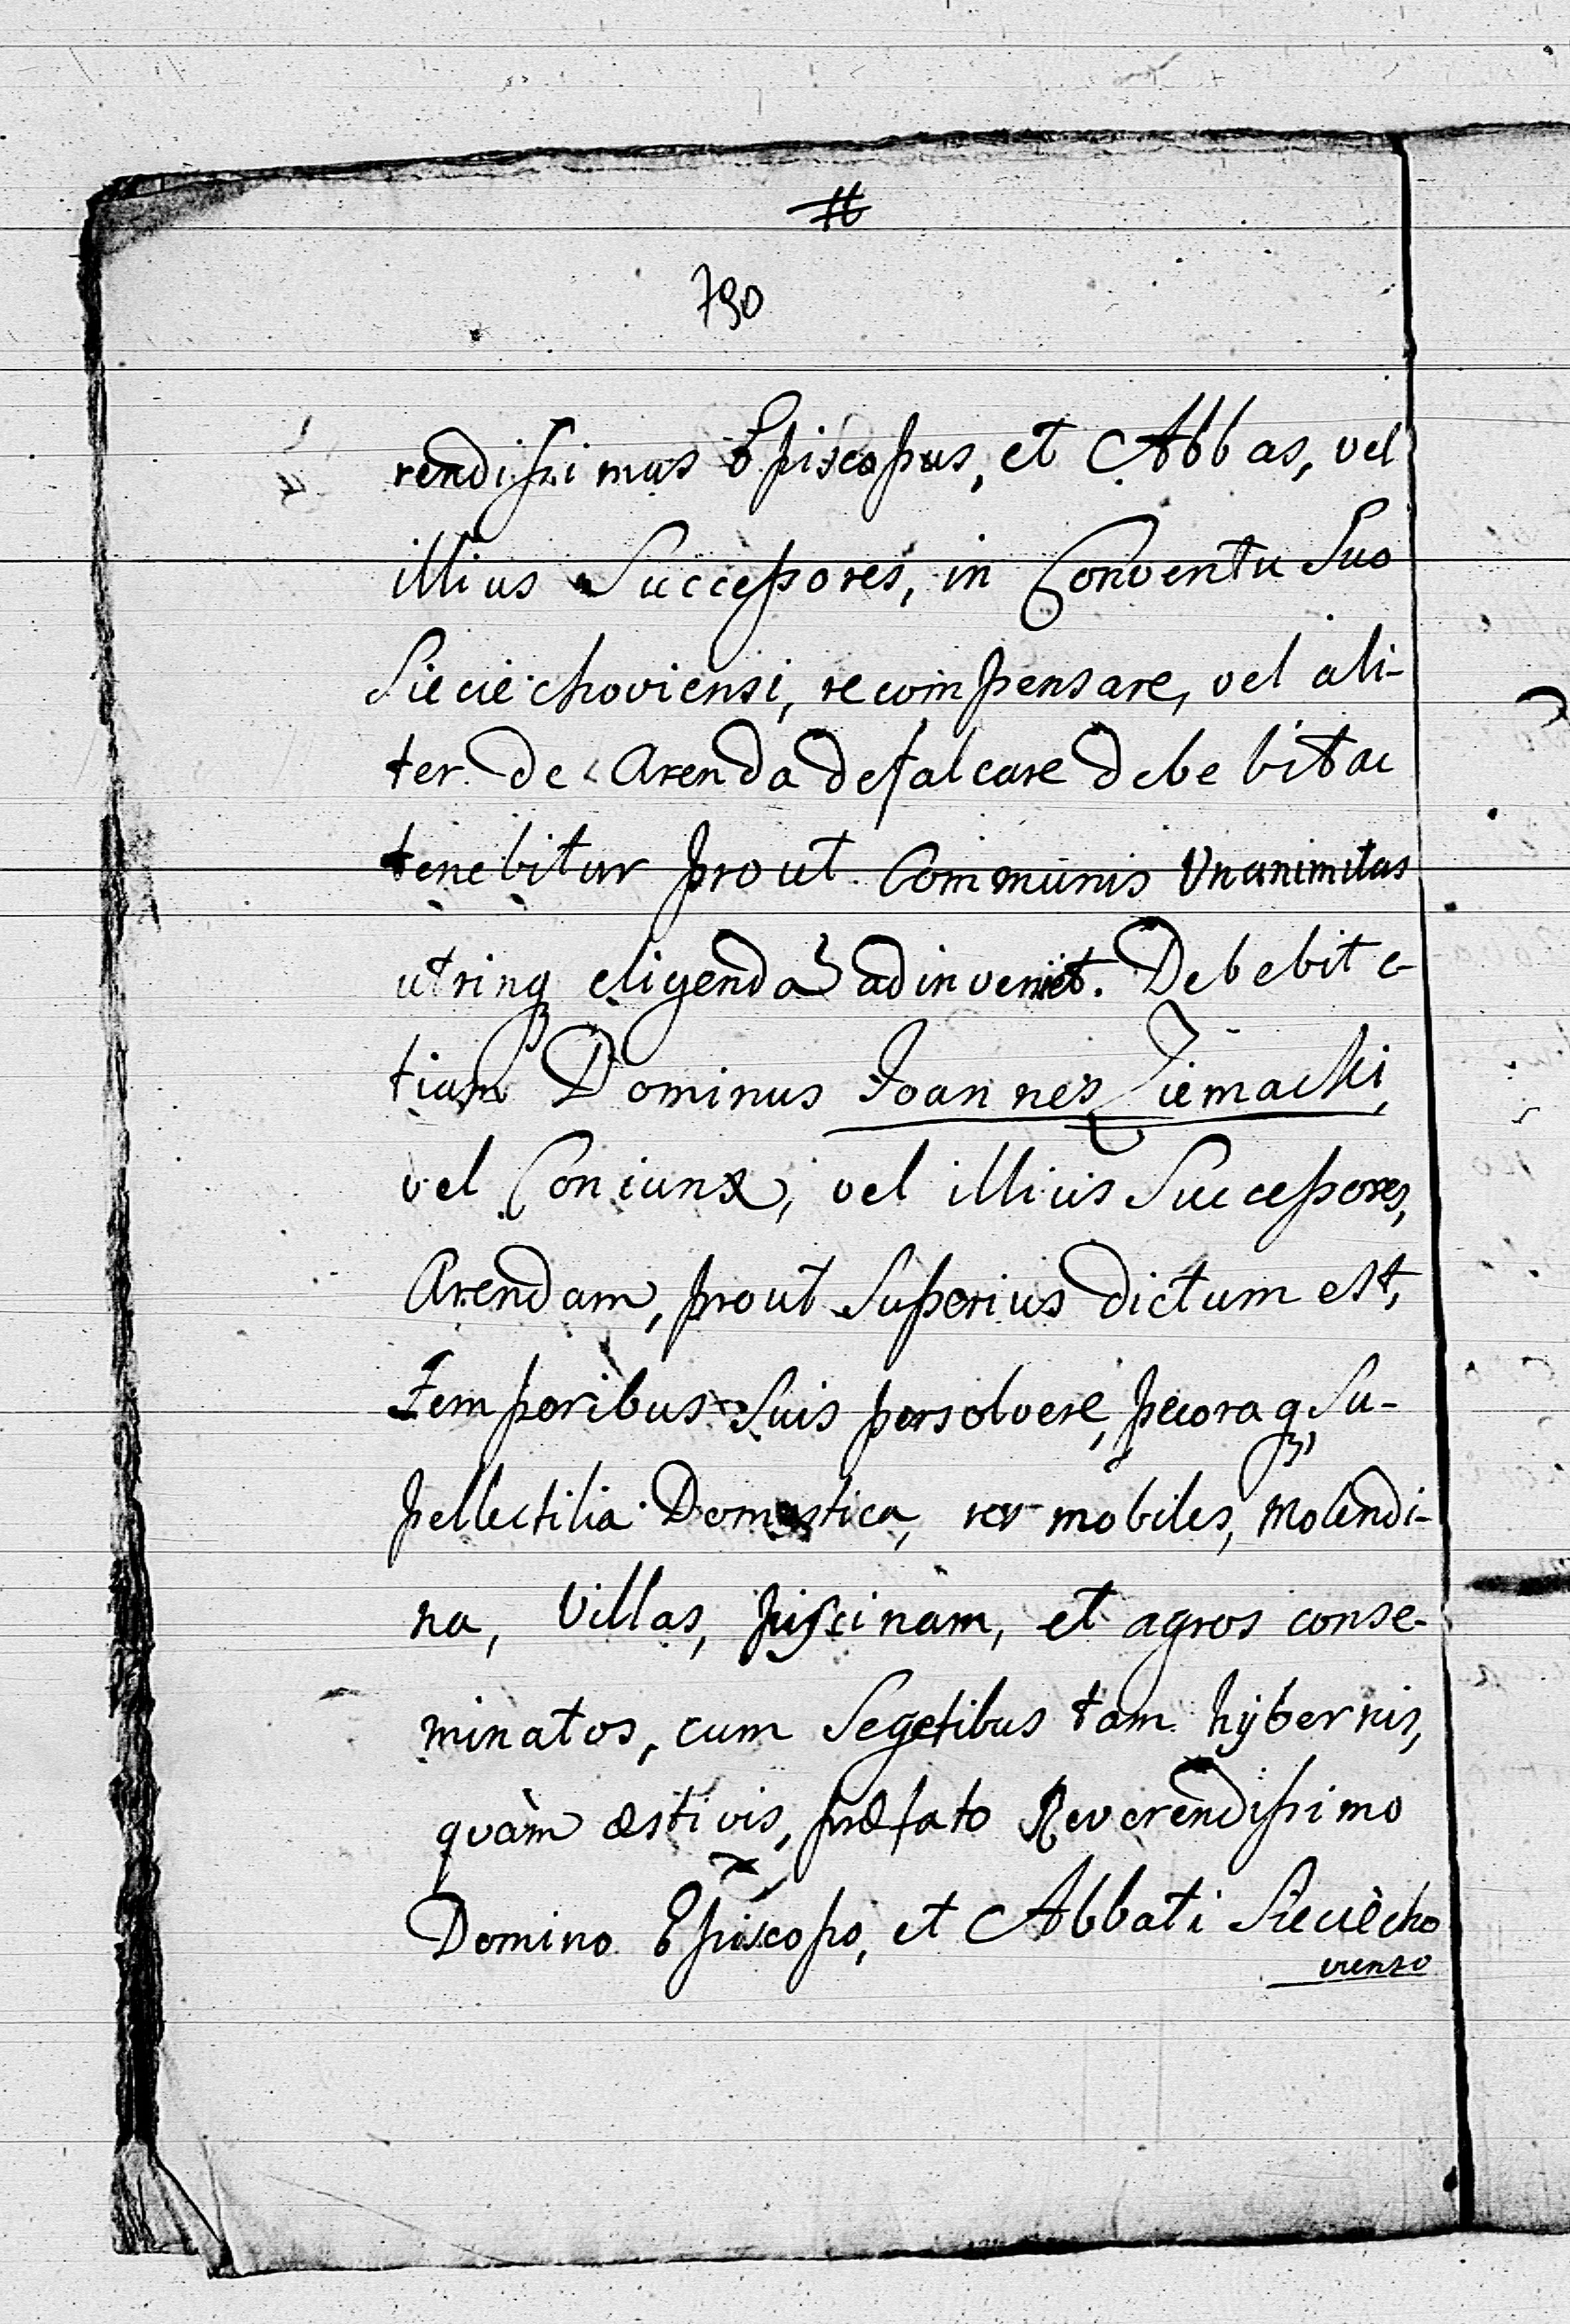 #
790
rendissimus Episcopus, et Abbas, vel
illius Successores, in Conventu Suo
Sieciechoviensi, recompensare, vel ali-
ter de Arenda defalcare debebit ac
tenebitur prout Communis Unanimitas
utrinq eligenda adinveniet. Debebit e-
tiam Dominus Joannes Ziemacki,
vel Coniunx, vel illius Successores,
Arendam, prout Superius dictum est,
Temporibus Suis persolvere, pecoraq Su-
pellectilia Domestica, res mobiles, Molendi-
na, Villas, piscinam, et agros conse-
minatos, cum Segetibus tam hybernis,
quàm æstivis, præfato Reverendissimo
Domino Episcopo, et Abbati Sieciecho
viensi